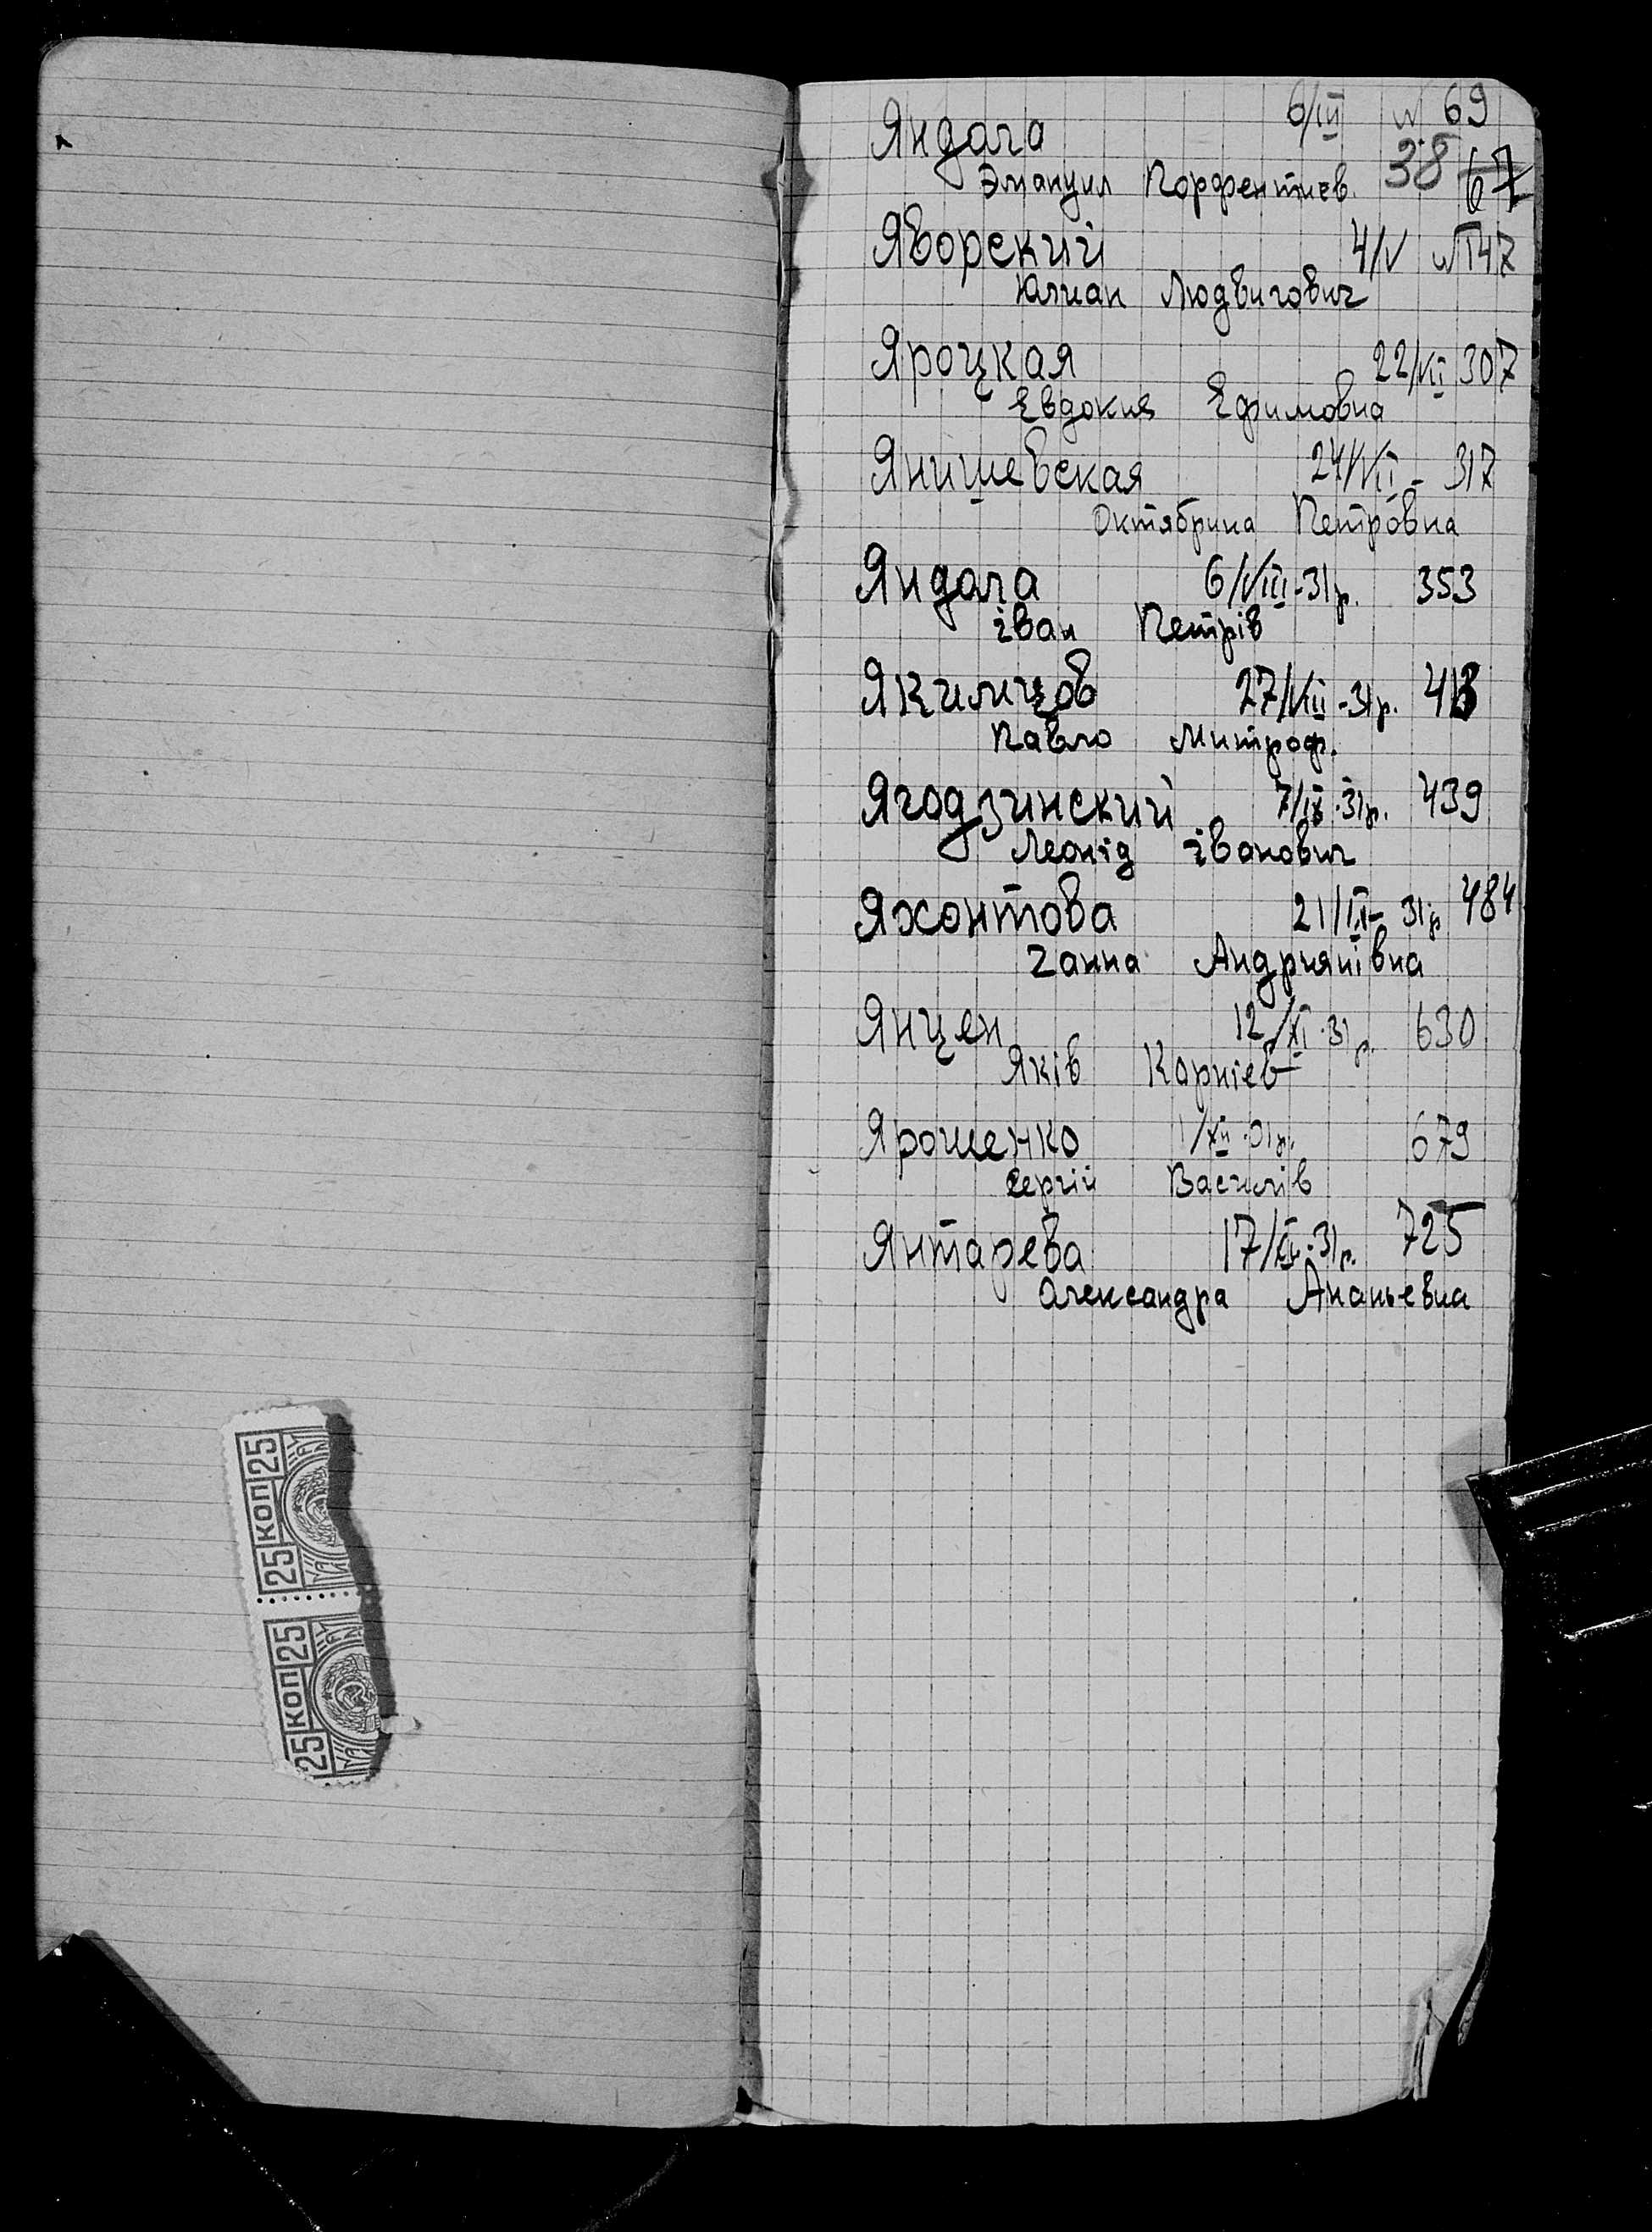 25 КОП 25
25 КОП 25
6/III № 69
Яндога 38 67
Эмануил Порфентиев.
Яворский 4/V №147
Юлиан Людвигович
Яроцкая 22/VII 307
Евдокия Ефимовна
Янишевская 24/VII - 317
Октябрина Петровна
Яндога 6/VIII-31р. 353
Іван Петрів
27/VIII-31р. 413
Павло Митроф.
Ягодзинский 7/IX-31р. 439
Леонід Іванович
Яхонтова 21/IX-31р 484
Ганна Андриянівна
Янцен 12/XI-31р. 630
Яків Корнієв
Ярошенко 1/XII-31р. 679
Сергій Василів
Янтарева 17/XII-31р. 725
Олександра Ананьевна